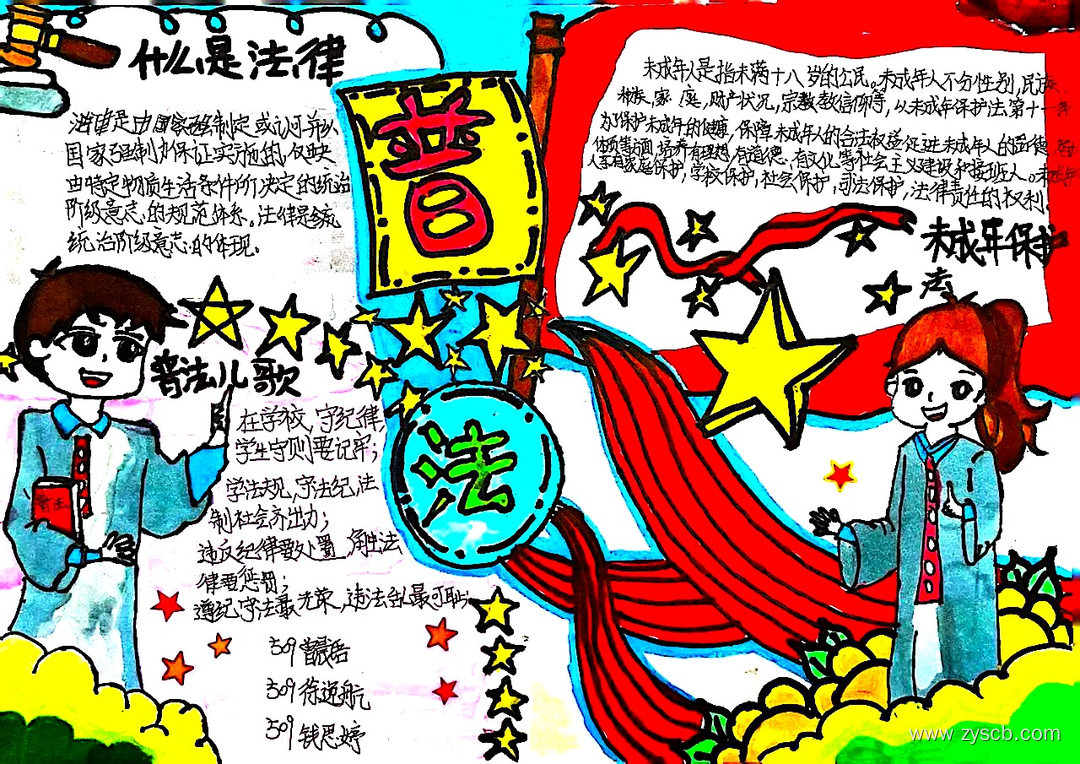 什么是法律
法律是由国家制定或认可并以
国家强制力保证实施的,反映
由特定物质生活条件所决定的统治
阶级意志的规范体系。法律是
统治阶级意志的体现。
普
法
未成年人是指未满十八岁的公民。未成年人不分性别,民族、
种族、家庭,财产状况,宗教信仰等,从未成年保护法第十一
为保护未成年的健康,保障未成年人的合法权益促进未成年人的品德、
体质等方面,培养有理想,有道德、有文化等社会主义建设和接班人。
人享有家庭保护,学校保护,社会保护,司法保护,法律责任的权利。
未成年保护
法
普法儿歌
在学校,守纪律
学生守则要记牢;
学法规,守法纪,法
制社会齐出力;
违反纪律要处置,触法
律要惩罚;
遵纪守法最光荣,违法乱最可耻;
普法
509
509
509 钱思婷
www.zyscb.com